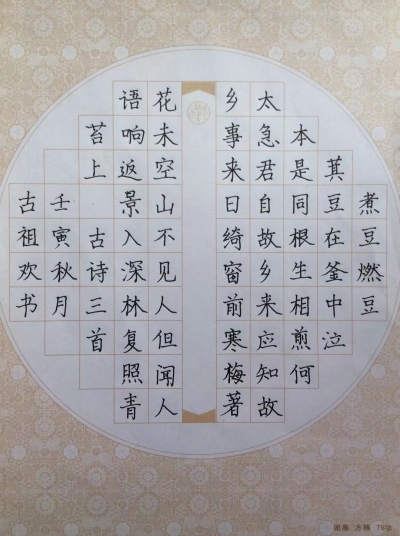 煮豆燃豆
萁豆在釜中泣
本是同根生相煎何
太急君自故乡来应知故
乡事来日绮窗前寒梅著
花未空山不见人但闻人
语响返景入深林复照青
苔上 古诗三首
壬寅秋月
古祖欢书